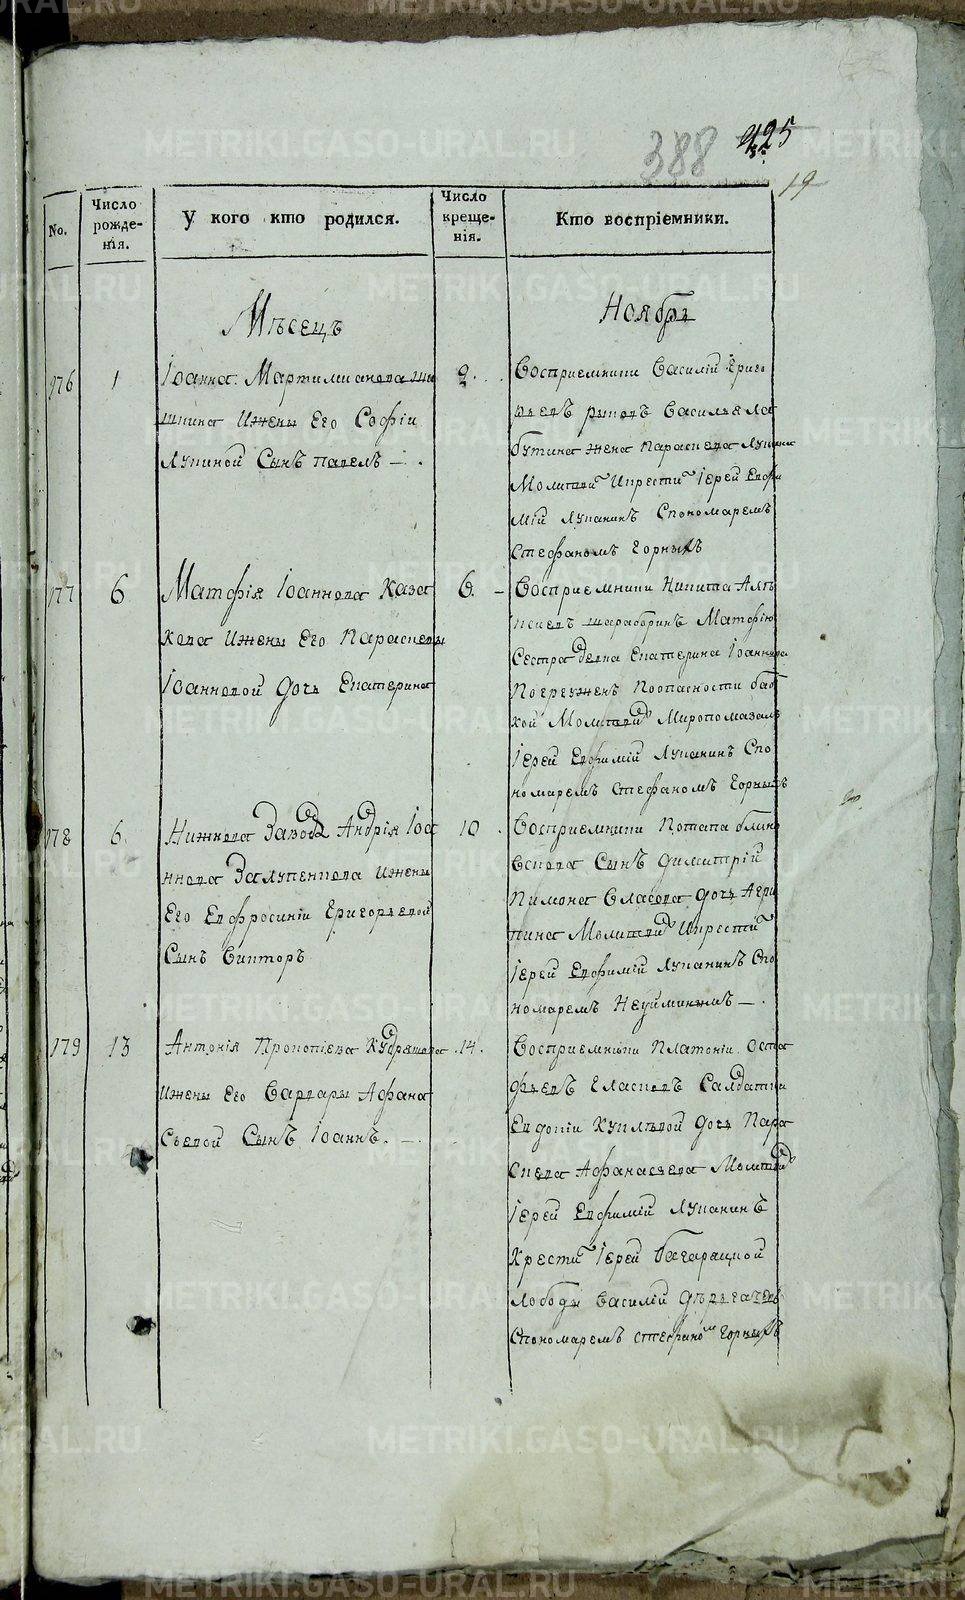 388 425
19
No.
Число рожде-
нія.
У кого кто родился.
Число креще-
нія.
Кто воспріемники.
Мѣсецъ
Ноябрь
176 1
Іоанна Мартимианова
шпина Ижены Его Софіи
Лупиной Сынъ павелъ —.
2.
Восприемники Василій Григо
рьевъ Василья Ла
бутина жена Параскева
Молитвой Икрестил Іерей Евфи
мій Лупанинъ Спономаремъ
Стефаномъ Горныхъ
177 6
Матфія Іоаннова Каза
кова Ижены Его Параскевы
Іоанновой Дочь Екатерина
6. –
Восприемники Никита
Матфію
Сестра Девка Екатерина Іоаннова
Погружен Поопасности баб
кой Молитвой Миропомазалъ
Іерей Евфимій Лупанинъ Спо
номаремъ Стефаномъ Горныхъ
178 6.
Нижнова Завода Андрія Іоа
ннова Залупенкова Ижены
Его Евфросиніи Григорьевой
Сынъ Викторъ
10
Восприемники Потапа
Сынъ Димитрій
Пимона Власова дочь Агри
пина Молитвой Икрестил
Іерей Евфимій Лупанинъ Спо
номаремъ Неуйминымъ —.
179 13
Антонія Прокопіева Кудряшова
Ижены Его Варвары Афана
Сьевой Сынъ Іоаннъ. —.
14.
Восприемники Платоній Оста
фьевъ Власковъ Салдатки
Евдокіи Дочь Пара
Скева Афанасьева Молитвой
Іерей Евфимій Лупанинъ
Крестил Іерей багарацкой
Слободы Василій
Спономаремъ Стефаномъ Горныхъ
METRIKI.GASO-URAL.RU